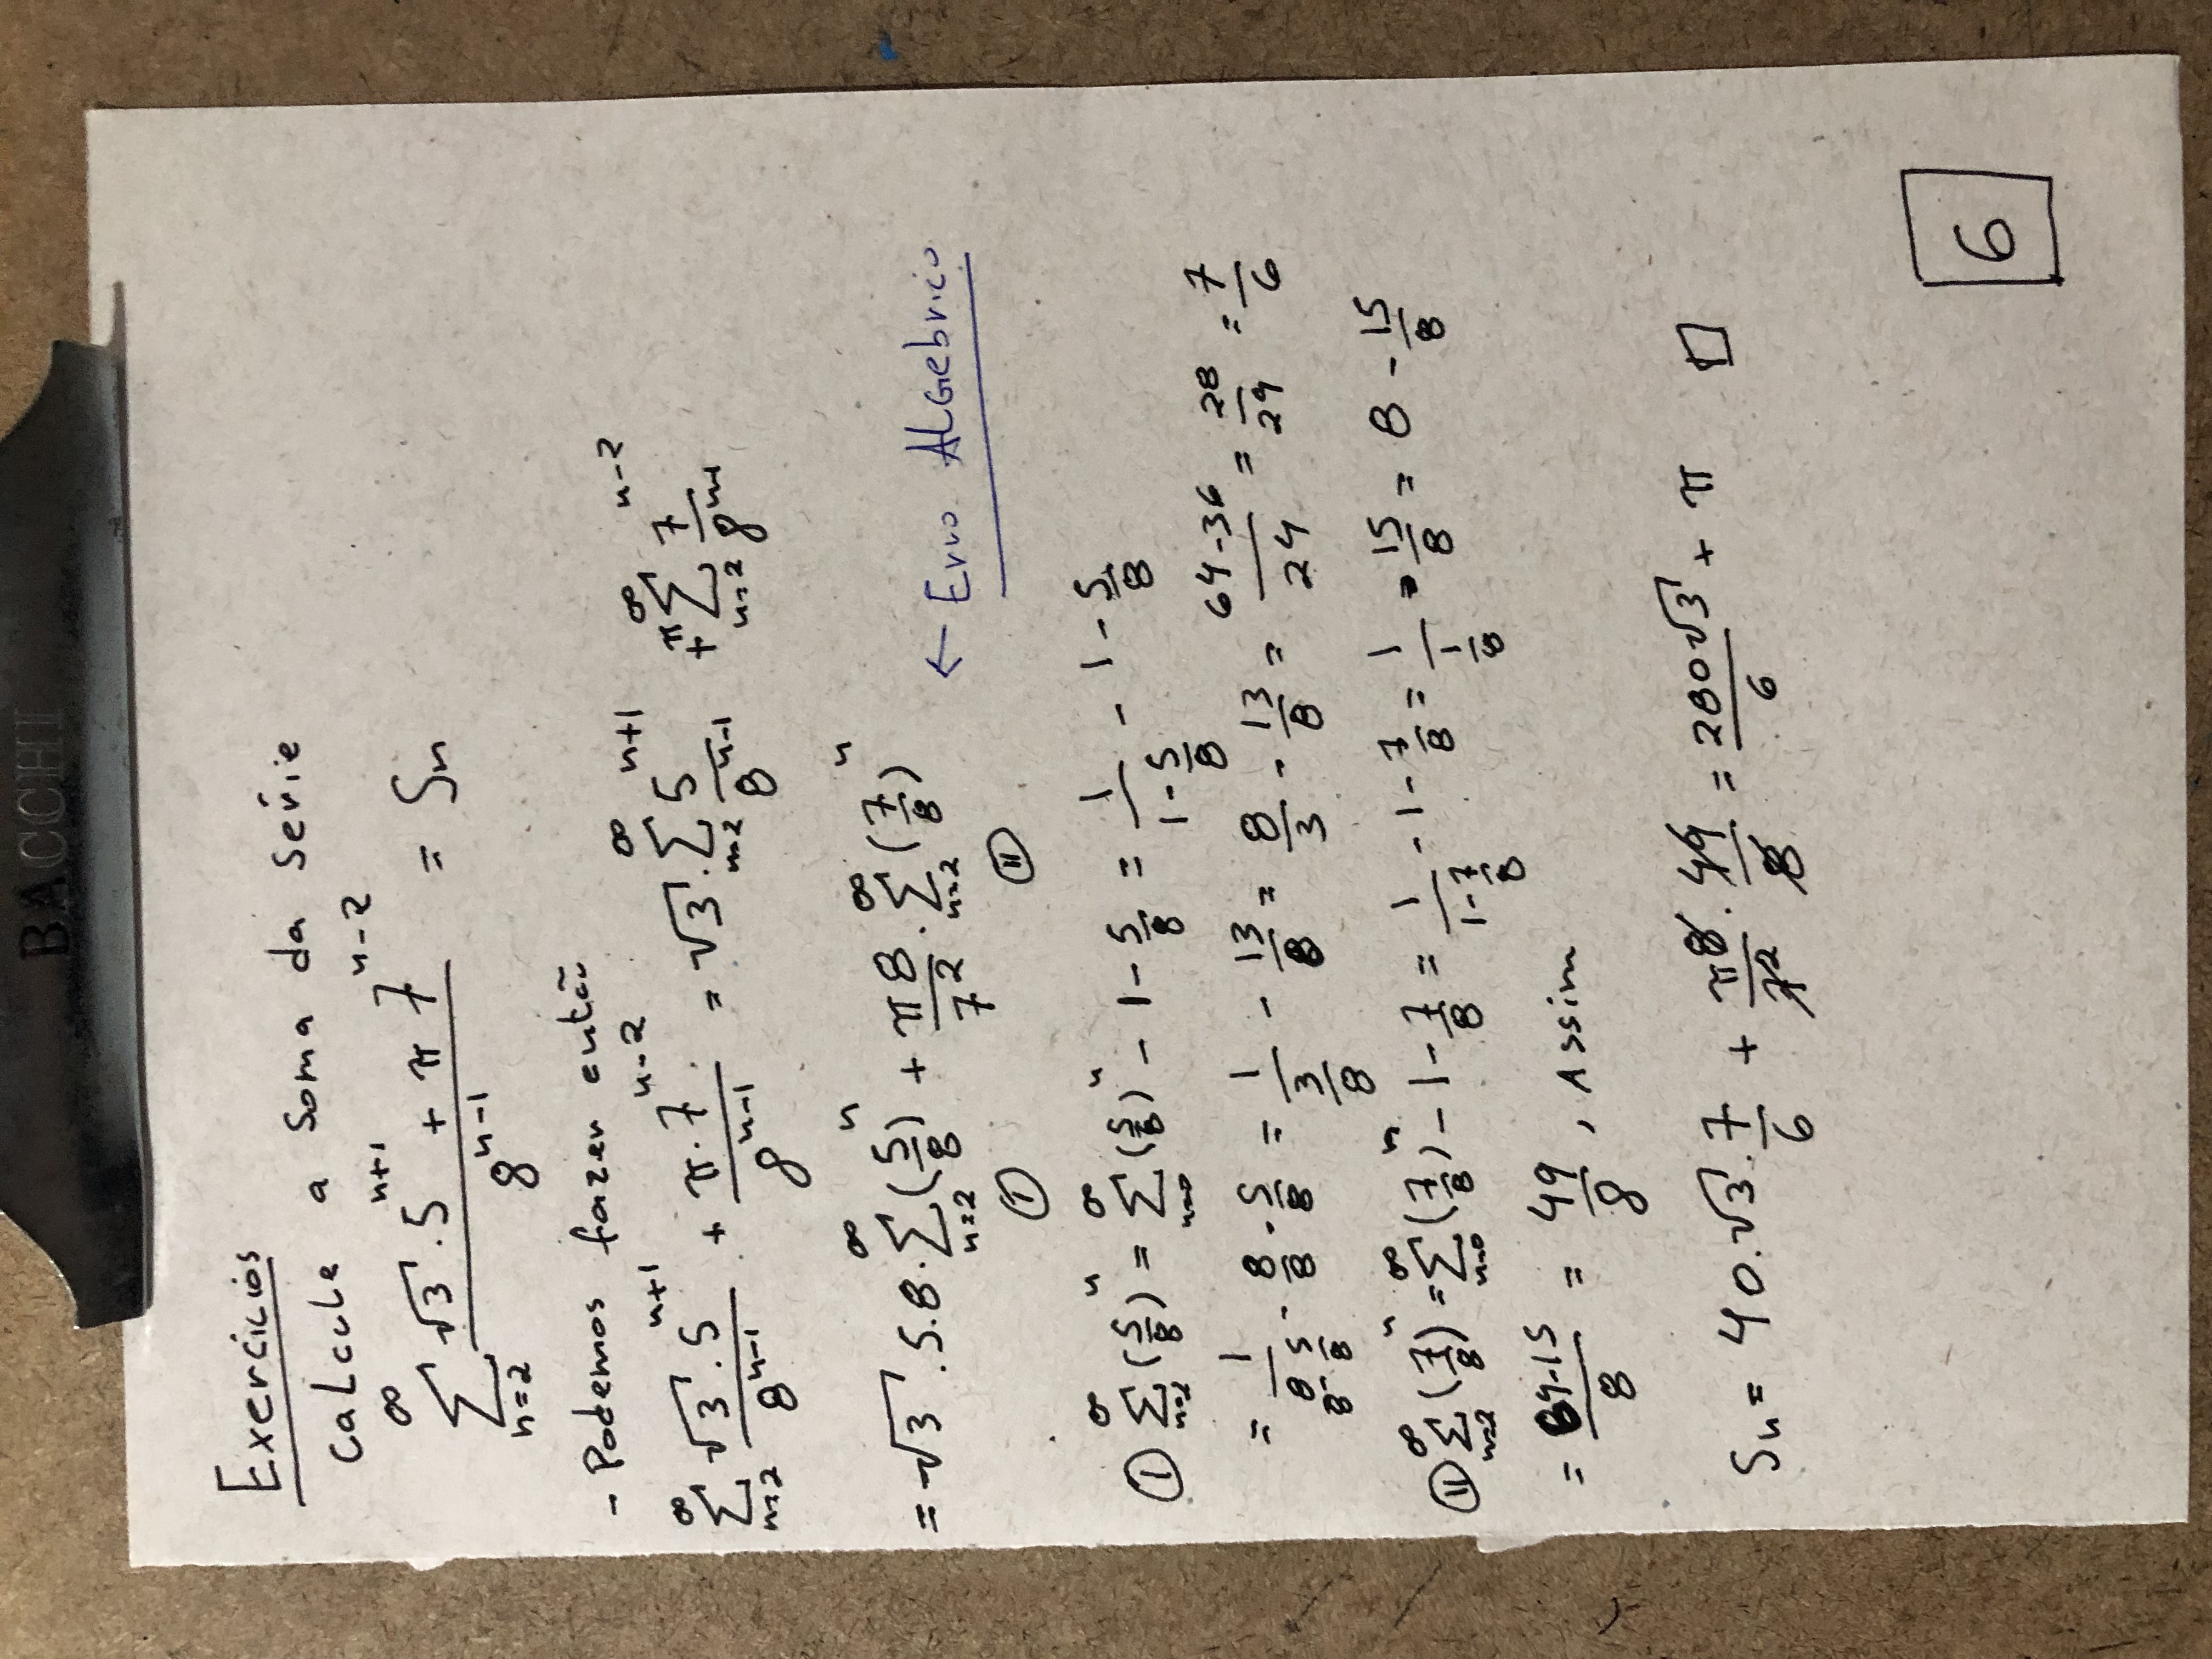 BACCHI
Exercícios
Calcule a Soma da série
∞ ∑ n=2 (√3 . 5^(n+1) + π 7^(n-2)) / 8^(n-1) = Sn
- Podemos fazer então
∞ ∑ n=2 (√3 . 5^(n+1)) / 8^(n-1) + (π . 7^(n-2)) / 8^(n-1) = √3 . ∞ ∑ n=2 5^(n+1) / 8^(n-1) + π ∞ ∑ n=2 7^(n-2) / 8^(n-1)
= √3 . 5.8 . ∞ ∑ n=2 (5/8)^n + π8/7^2 . ∞ ∑ n=2 (7/8)^n ← Erro ALGebrico
I II
I ∞ ∑ n=2 (5/8)^n = ∞ ∑ n=0 (5/8)^n - 1 - 5/8 = 1/(1 - 5/8) - 1 - 5/8
= 1/(8/8 - 5/8) - 8/8 - 5/8 = 1/(3/8) - 13/8 = 8/3 - 13/8 = (64-36)/24 = 28/24 = 7/6
II ∞ ∑ n=2 (7/8)^n = ∞ ∑ n=0 (7/8)^n - 1 - 7/8 = 1/(1 - 7/8) - 1 - 7/8 = 1/(1/8) - 15/8 = 8 - 15/8
= (64-15)/8 = 49/8 , Assim
Sn = 40.√3 . 7/6 + π8/7^2 . 49/8 = 280√3/6 + π □
6